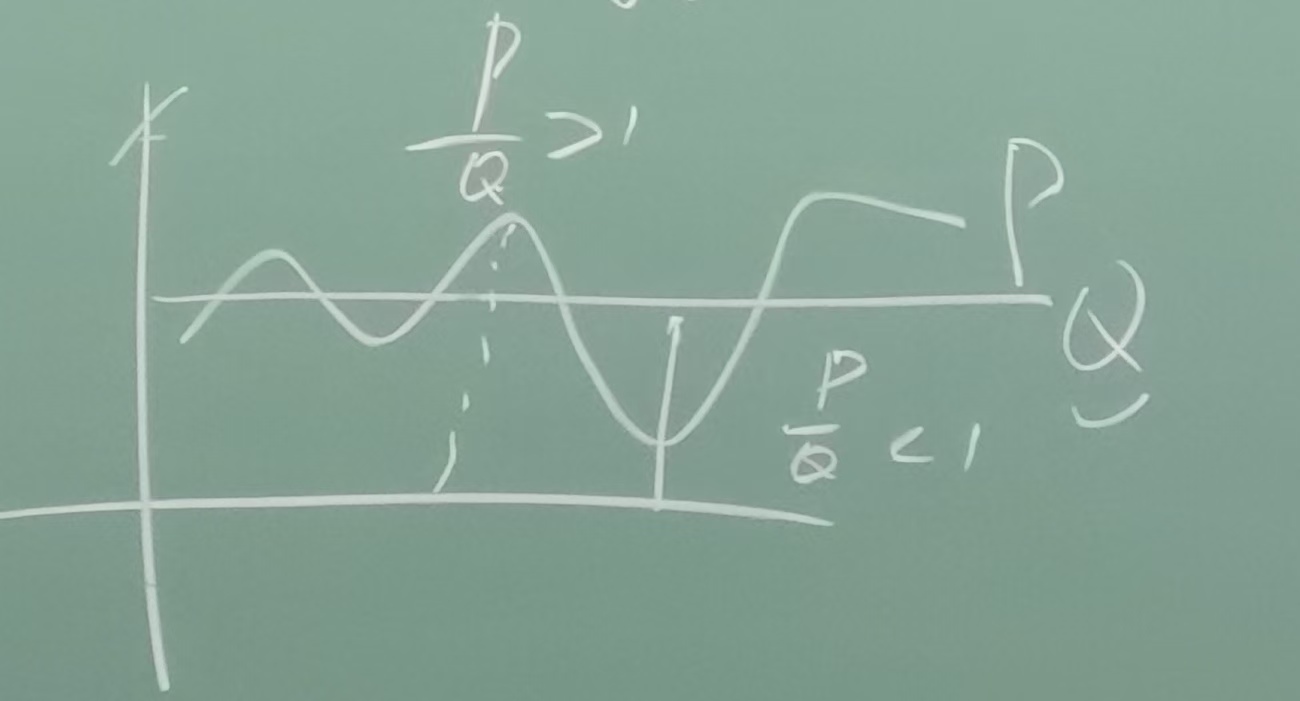 P
Q > 1
P
Q
P
Q < 1